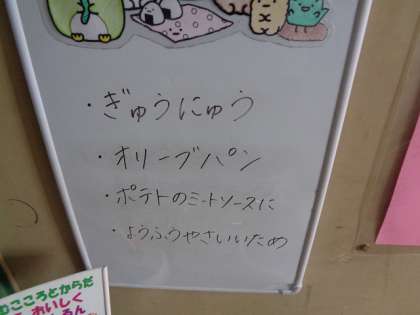 ・ぎゅうにゅう
・オリーブパン
・ポテトのミートソースに
・ようふうやさいいため
こころとからだ
おいしく